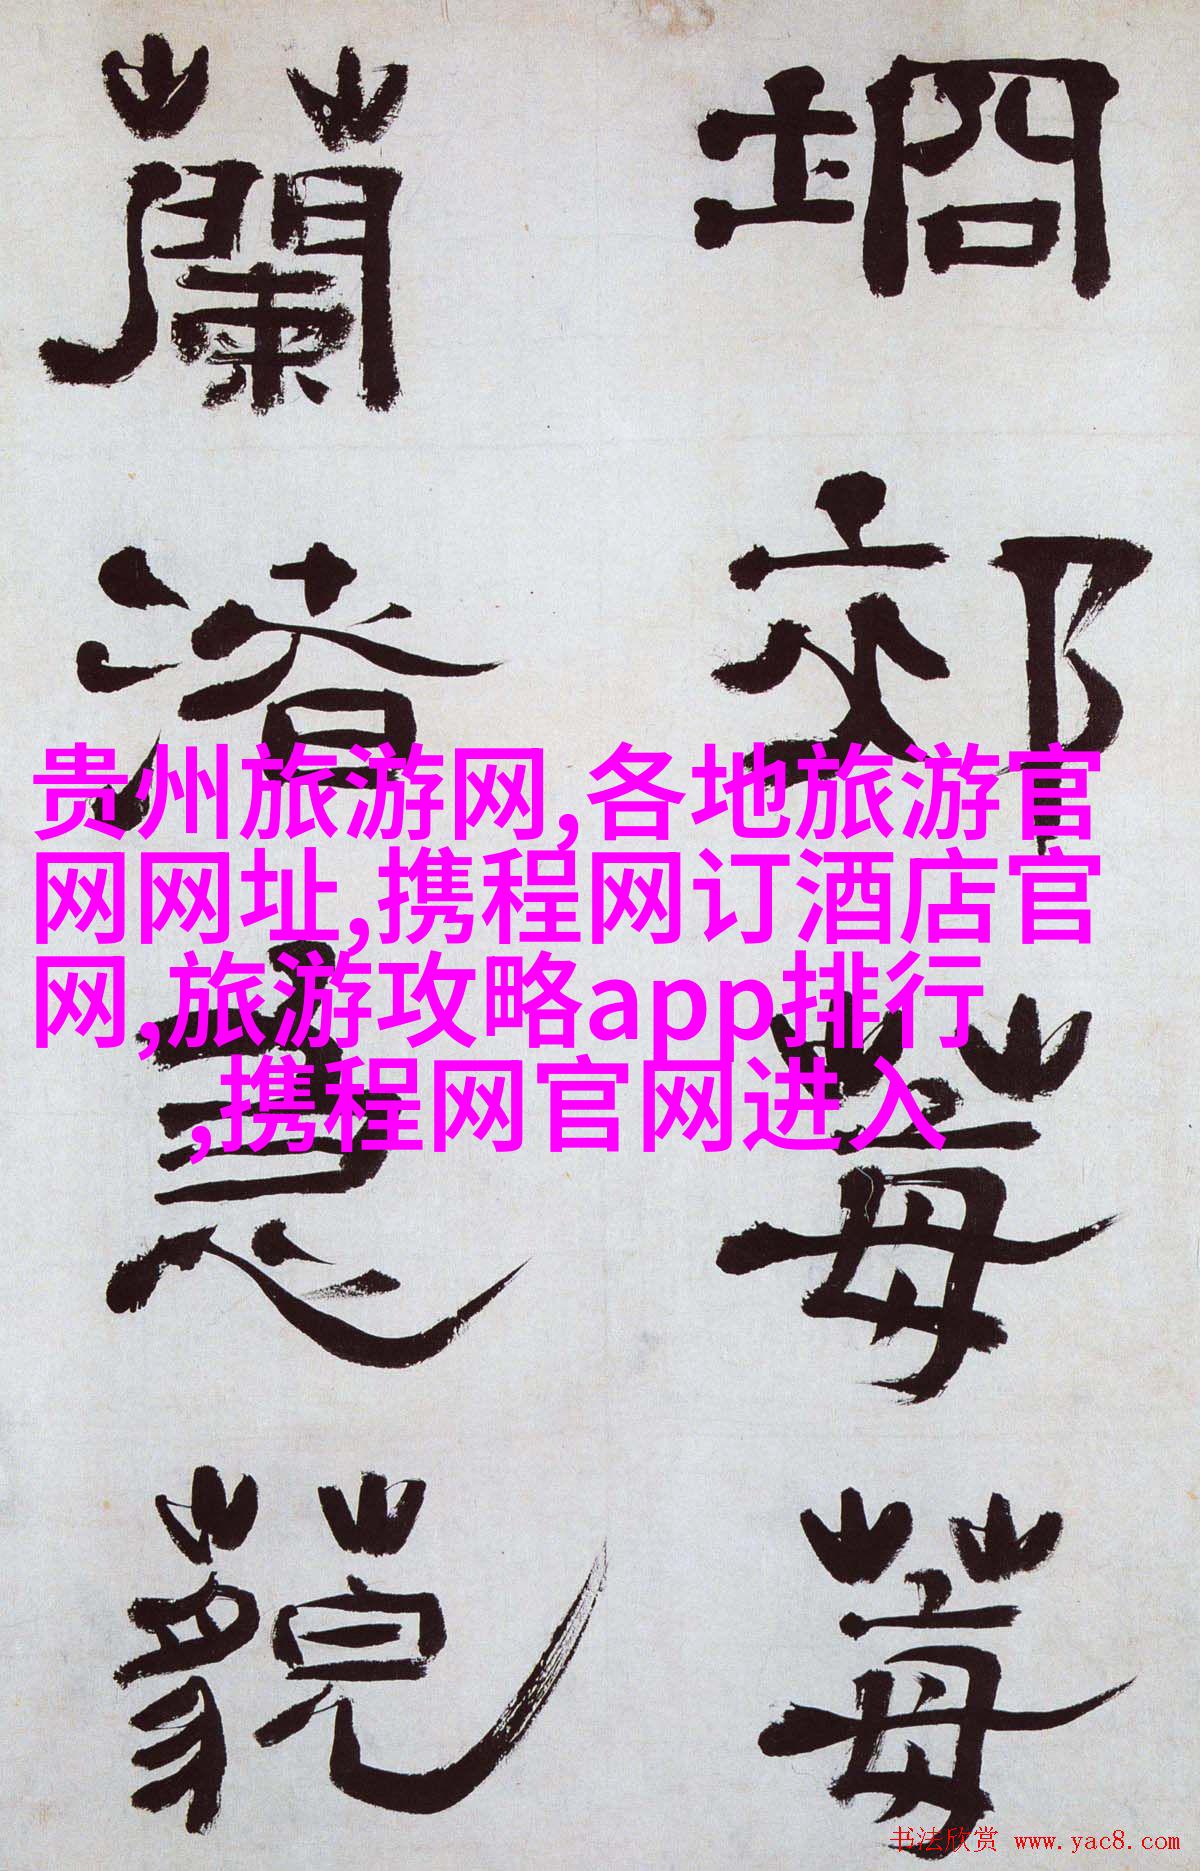 坰郊莓莓
蘭渚急藐
贵州旅游网,各地旅游官
网网址,携程网订酒店官
网,旅游攻略app排行
,携程网官网进入
书法欣赏 www.yac8.com